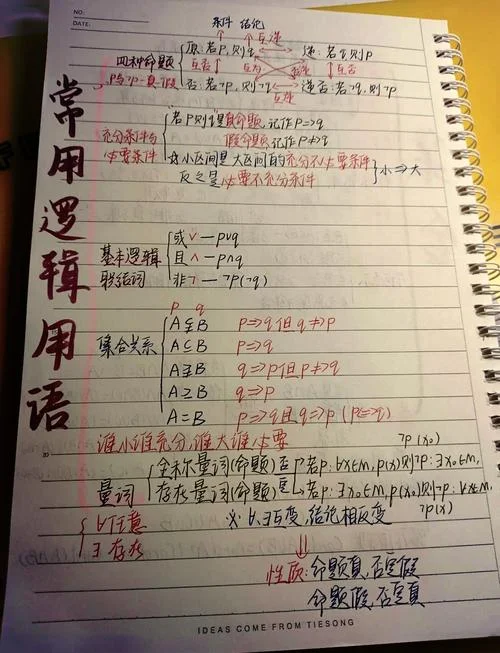 NO:
DATE:
条件 结论
常用逻辑用语
四种命题
原:若p,则q
互逆
逆:若q,则p
互否
互为
逆否
互否
p与¬p一真一假
否:若¬p,则¬q
互逆
逆否:若¬q,则¬p
充分条件与
必要条件
若p则q是真命题,记作p⇒q
假命题,记作p⇏q
小区间是大区间的充分不必要条件
反之是必要不充分条件
小⇒大
基本逻辑
联结词
或∨—p∪q
且∧—p∩q
非¬—¬p(¬q)
p q
集合关系
A⫋B p⇒q但q⇏p
A⊆B p⇒q
A⫌B q⇒p但p⇏q
A⊇B q⇒p
A=B p⇒q且q⇒p(p⇔q)
谁小谁充分,谁大谁必要
¬p(x₀)
量词
全称量词(命题)否→若p:∀x∈M,p(x)则¬p:∃x₀∈M,
存在量词(命题)定→若p:∃x₀∈M,p(x₀)则¬p:∀x∈M,
¬p(x)
∀任意
∃存在
※∀,∃互变,结论相反变
性质:命题真,否定假
命题假,否定真
IDEAS COME FROM TIESONG